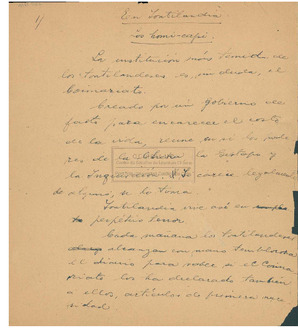 1/
En Tontilandia
los homi-capi
La institución más temida de
los Tontilandeses es, sin duda, el
Comisariato.
Creado por un gobierno de
facto para encarecer el costo
de la vida, reune en si los pode
res de la Cheska, la Gestapo y
la Inquisición. Si carece legalmente
de alguno, se lo toma.
Tontilandia vive así en
perpétuo terror.
Cada mañana los Tontilandeses
alcanzan con mano temblorosa
el diario para saber si el Comisa
riato los ha declarado también
a ellos, artículos de primera nece
sidad.